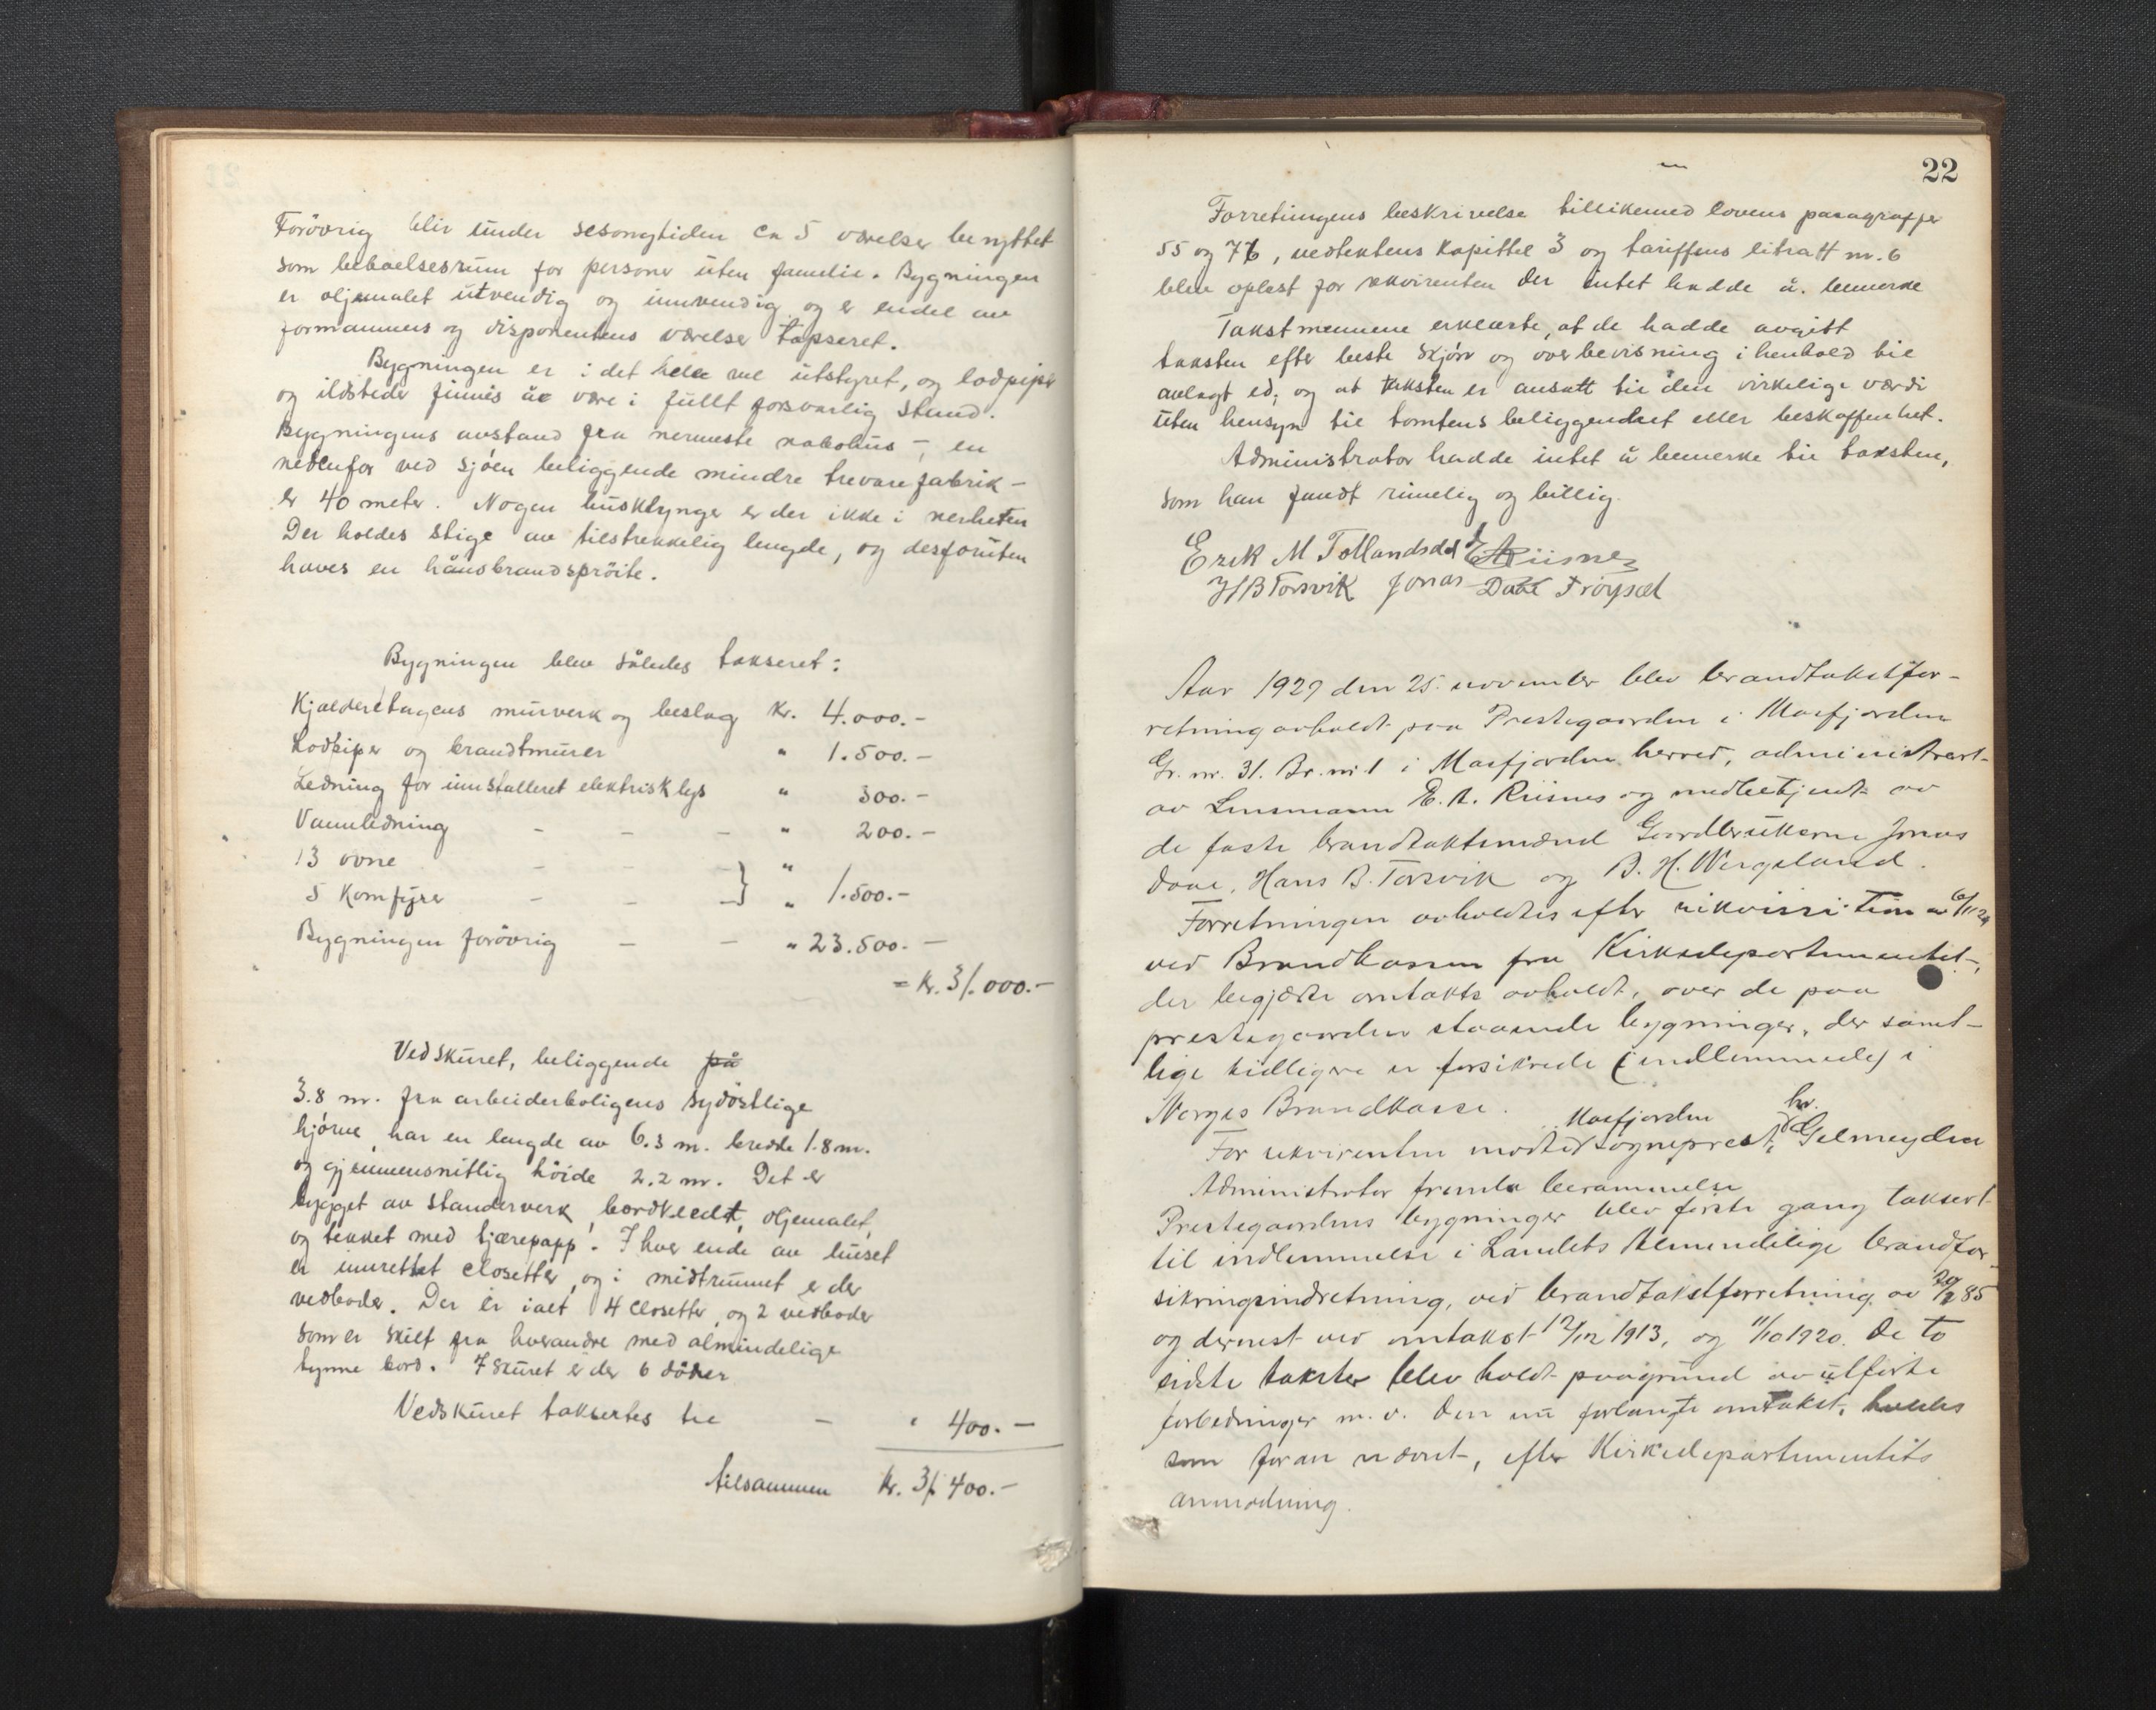 Forövrig bliv under sesongtiden ca 5 værelser benyttet
som beboelsesrum for personer uten familie. Bygningen
er oljemalet utvendig og innvendig og er endel av
formannens og disponentens værelser tapseret.
Bygningen er i det hele vel utstyret, og lodpiper
og ildsteder finnes å være i fullt forsvarlig stand.
Bygningens avstand fra nermeste nabohus – en
nedenfor ved sjöen beliggende mindre trevarefabrik –
er 40 meter. Nogen husklynger er der ikke i nerheten
Der holdes stige av tilstrekkelig lengde, og desforuten
haves en håndbrandspröite.
Bygningen blev således takseret:
Kjælderetagens murverk og beslag Kr. 4.000.–
Lodpiper og brandtmurer " 1.500.–
Ledning for innstalleret elektrisk lys " 300.–
Vannledning – – – " 200.–
13 ovne – – "
5 Komfyrer – – } " 1.500.–
Bygningen forövrig – – " 23.500.–
= Kr. 31.000.–
Vedskuret, beliggende på
3.8 m. fra arbeiderboligens sydöstlige
hjörne, har en lengde av 6.3 m. bredde 1.8 m.
og gjennemsnitlig höide 2.2 m. Det er
bygget av standerverk, bordkledt, oljemalet,
og tekket med tjærepapp. I hver ende av huset
er innrettet closetter, og i midtrummet er der
vedboder. Der er ialt 4 closetter og 2 vedboder
som er skilt fra hverandre med almindelige
tynne bord. I skuret er der 6 dörer
Vedskuret takseres til – " 400.–
tilsammen Kr. 31.400.–
22
Forretningens beskrivelse tillikemed lovens paragraffer
55 og 76, vedtektens kapittel 3 og tariffens litra H nr. 6
blev oplest for rekvirenten der intet hadde å bemerke
Takstmennene erklærte, at de hadde avgitt
taksten efter beste skjön og overbevisning i henhold til
avlagt ed, og at taksten er ansatt til den virkelige værdi
uten hensyn til tomtens beliggenhet eller beskaffenhet.
Administrator hadde intet å bemerke til taksten,
som han fandt rimelig og billig.
Erik M Tollandsdal E A Riisnes
H B Torsvik Jonas Dale Fröyset
Aar 1929 den 25. november blev brandtakstfor-
retning avholdt paa Prestegaarden i Masfjorden
Gr. nr. 31. Br. nr 1 i Masfjorden herred, administrert
av Lensmann E. A. Riisnes og medbetjent av
de faste brandtakstmænd Gaardbrukerne Jonas
Daae, Hans B. Torsvik og B. H. Wergeland.
Forretningen avholdtes efter rikvisition av 6/11 29
ved Brandkassen fra Kirkedepartementet,
der begjærte omtakst avholdt, over de paa
prestegaarden staaende bygninger, der samt-
lige tidligere er forsikrede (indlemmede) i
Norges Brandkasse.
For rekvirenten mødte Masfjorden sogneprest, hr. Gelmeyden
Administrator fremla berammelse
Prestegaardens bygninger blev første gang taksert
til indlemmelse i Landets Almindelige brandfor-
sikringsindretning, ved brandtakstforretning av 85
og dernest ved omtakst 12/12 1913, og 11/10 1920. De to
sidste takster blev holdt paagrund av utførte
forbedringer m. v. Den nu forlangte omtakst, holdes
som foran nævnt, efter Kirkedepartementets
anmodning.